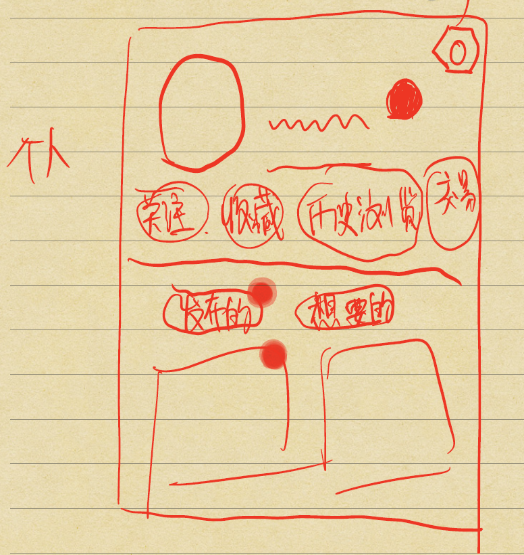 个人
关注 收藏 历史浏览 交易
发布的 想要的